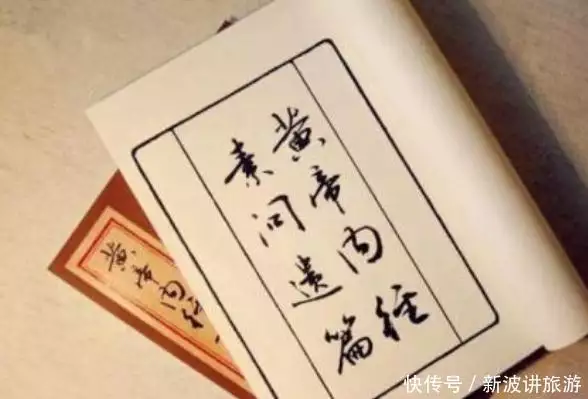 黄帝内经
素问遗篇
黄帝内经
快传号／新波讲旅游